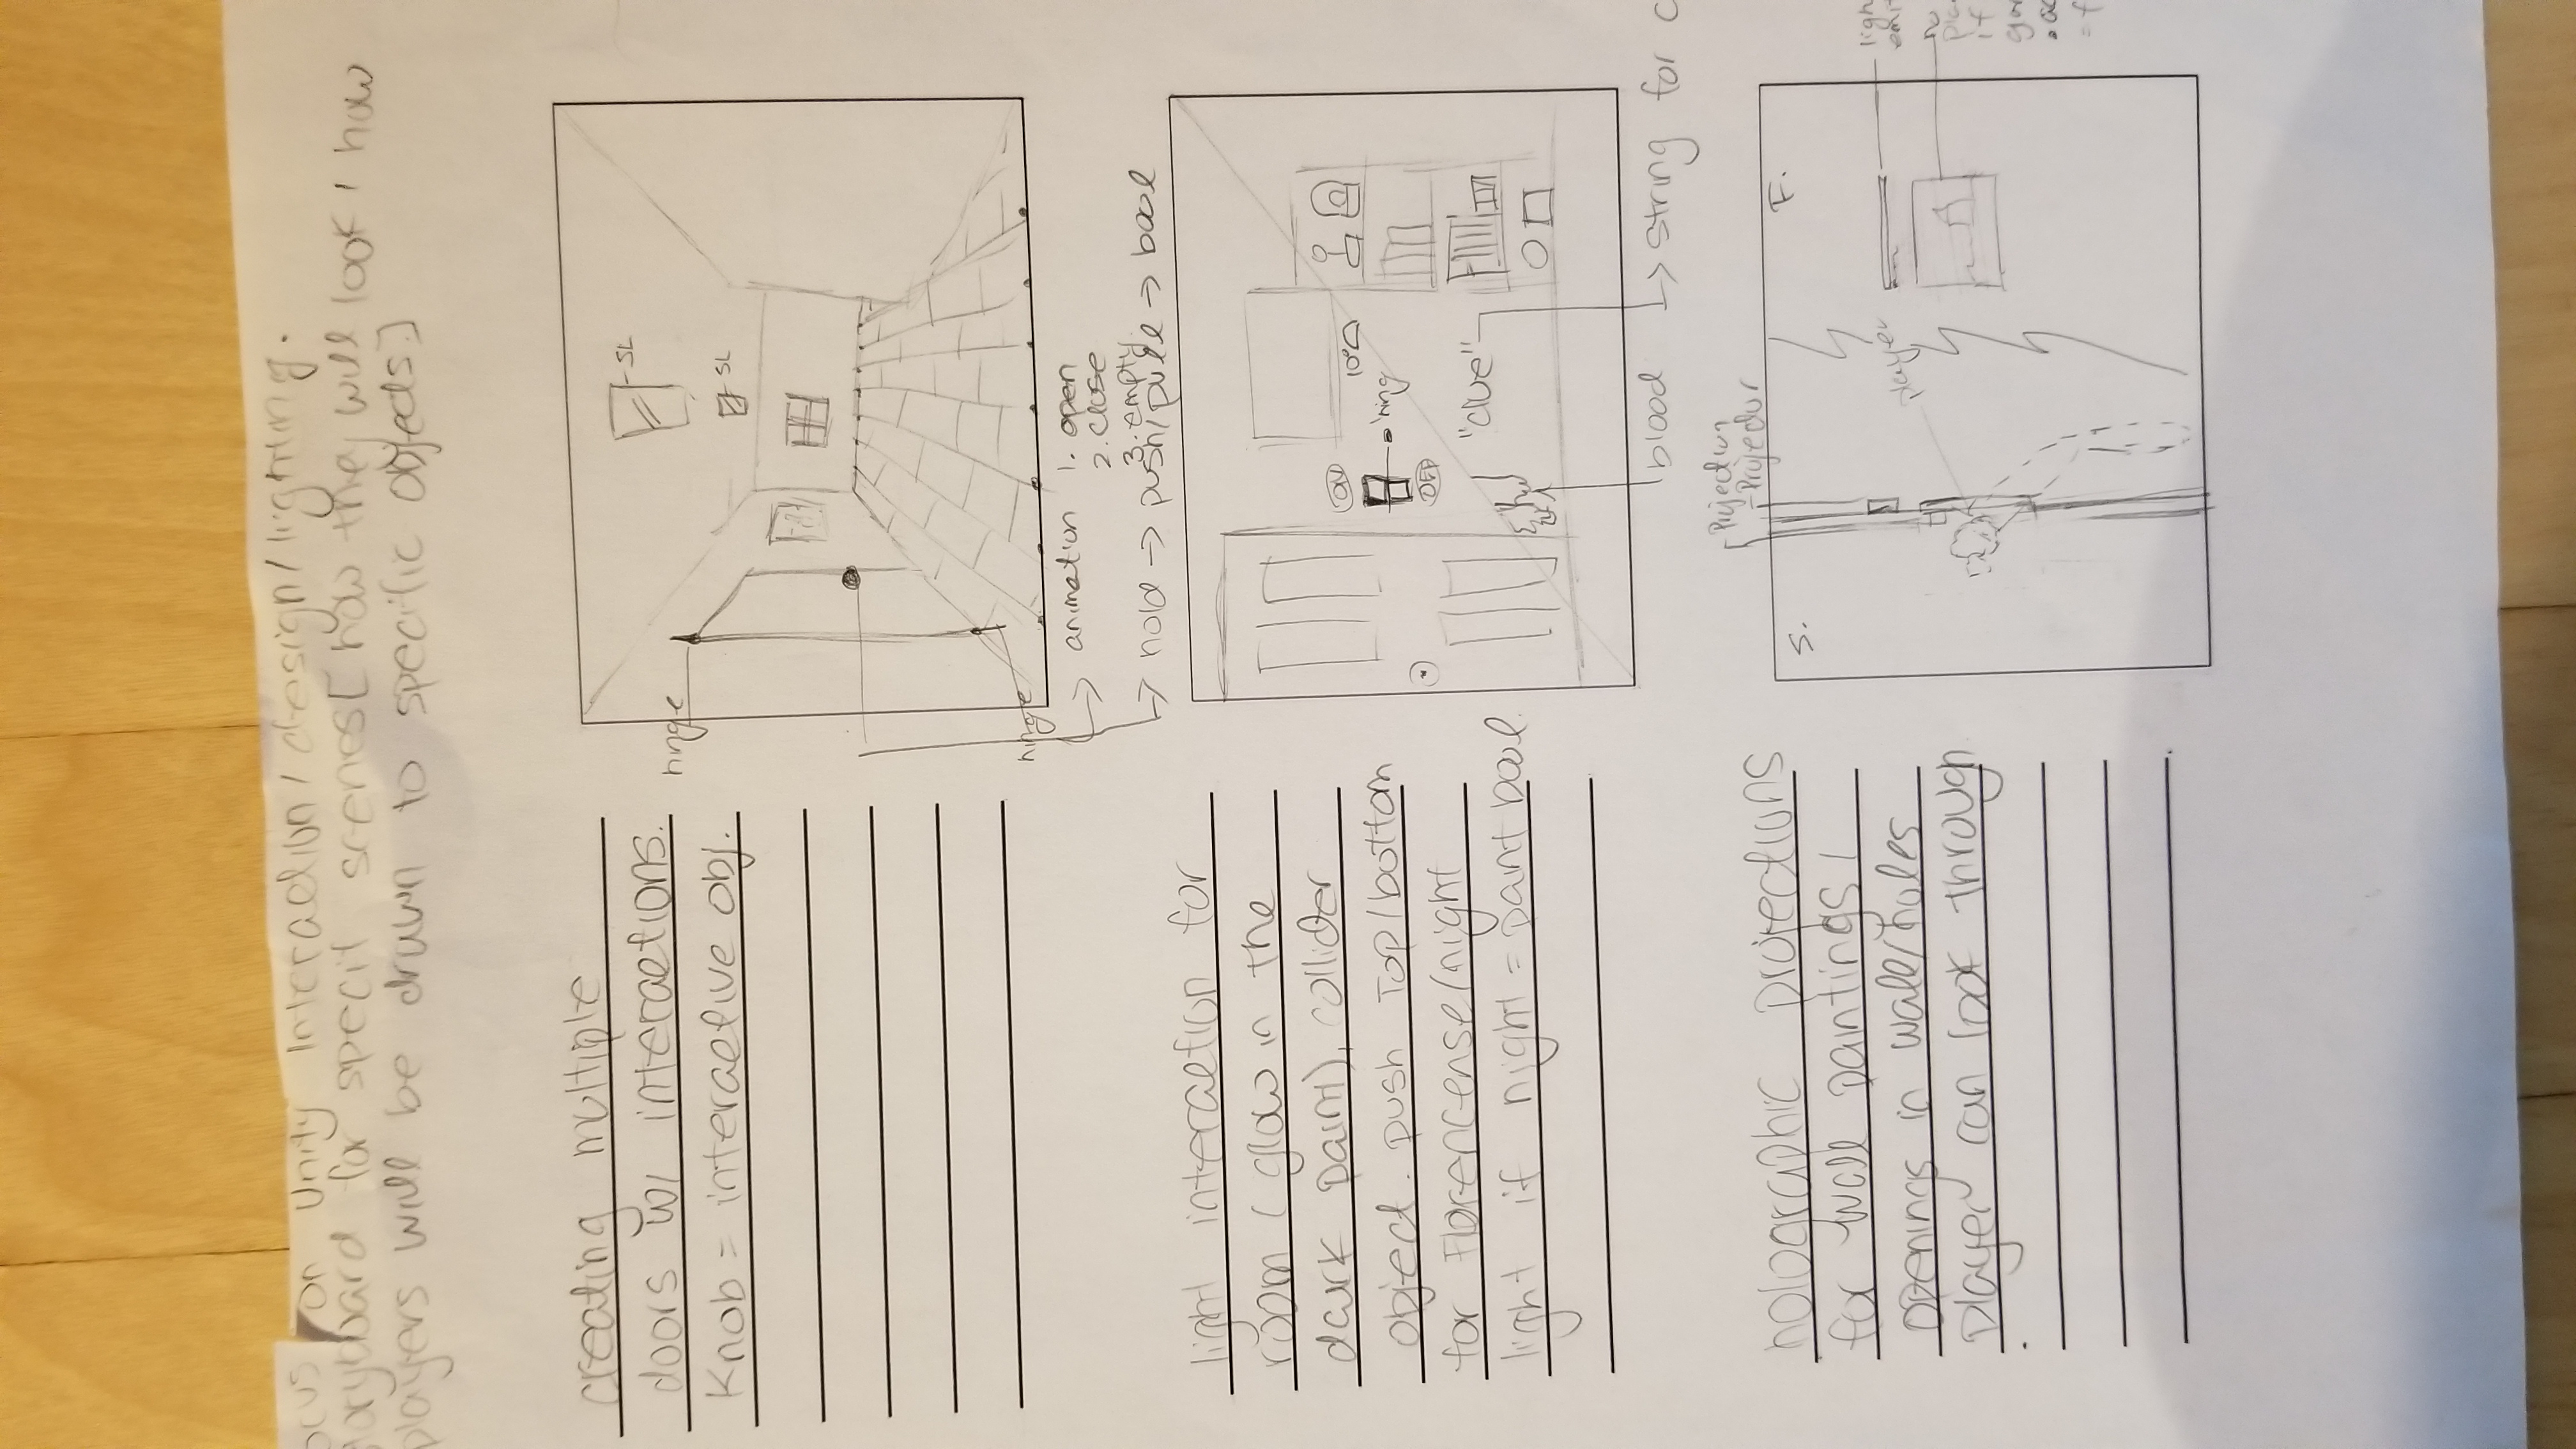 on Unity Interaction/design/lighting.
for specif scenes [how they will look / how
players will be drawn to specific objects.]
creating multiple
doors w/ interactions.
Knob = interactive obj.
hinge
SL
SL
hinge
animation 1. open
2. close
3. empty
hold → push/pull → bool
light interaction for
room (glow in the
dark paint), collider
object. push Top/bottom
for Florencense/night
light if night = paint bool.
ON
OFF
"clue"
blood
string for
holographic projections
for wall paintings/
openings in wall/holes
player can look through
.
Projection
Projector
S.
F.
player